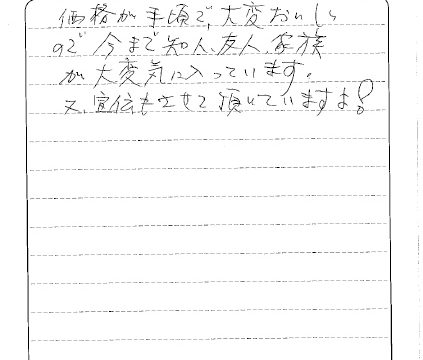 価格が手頃で、大変おいしい
ので今まで知人、友人、家族
が大変気に入っています。
又、宣伝もさせて頂いていますよ!